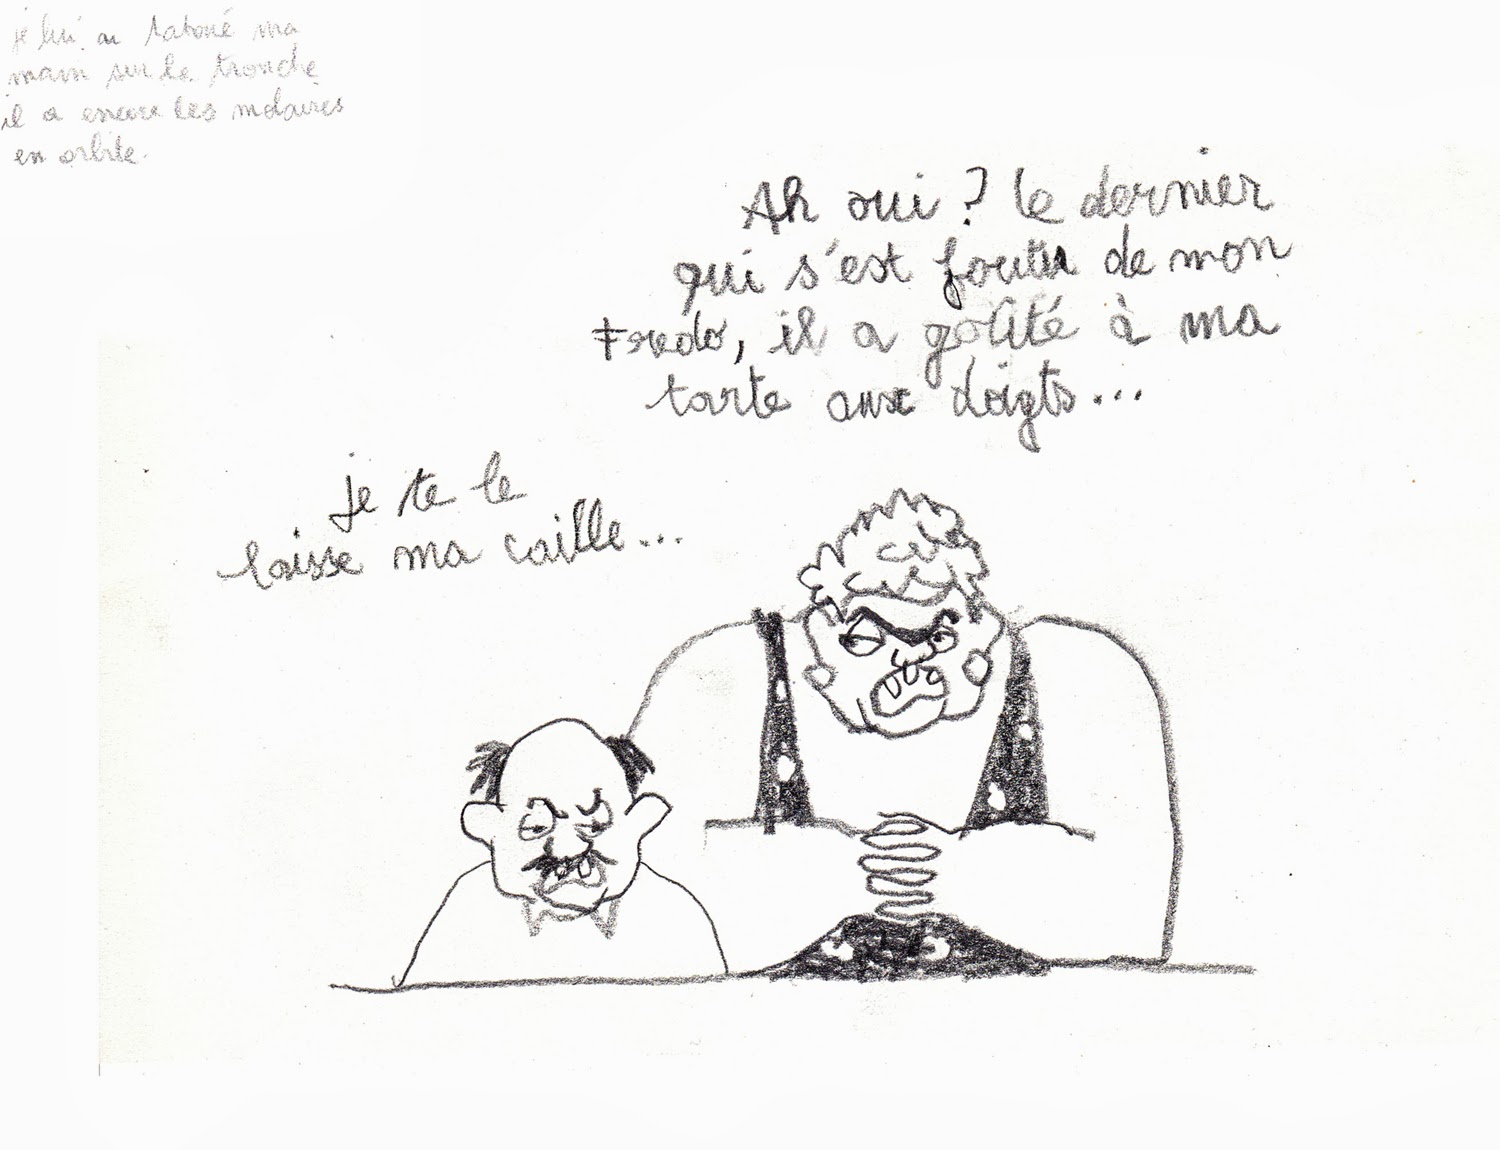 je lui ai tatoué ma
main sur la tronche
il a encore les molaires
en orbite.
Ah oui ? le dernier
qui s'est foutu de mon
Fredo, il a goûté à ma
tarte aux doigts...
je te le
laisse ma caille...